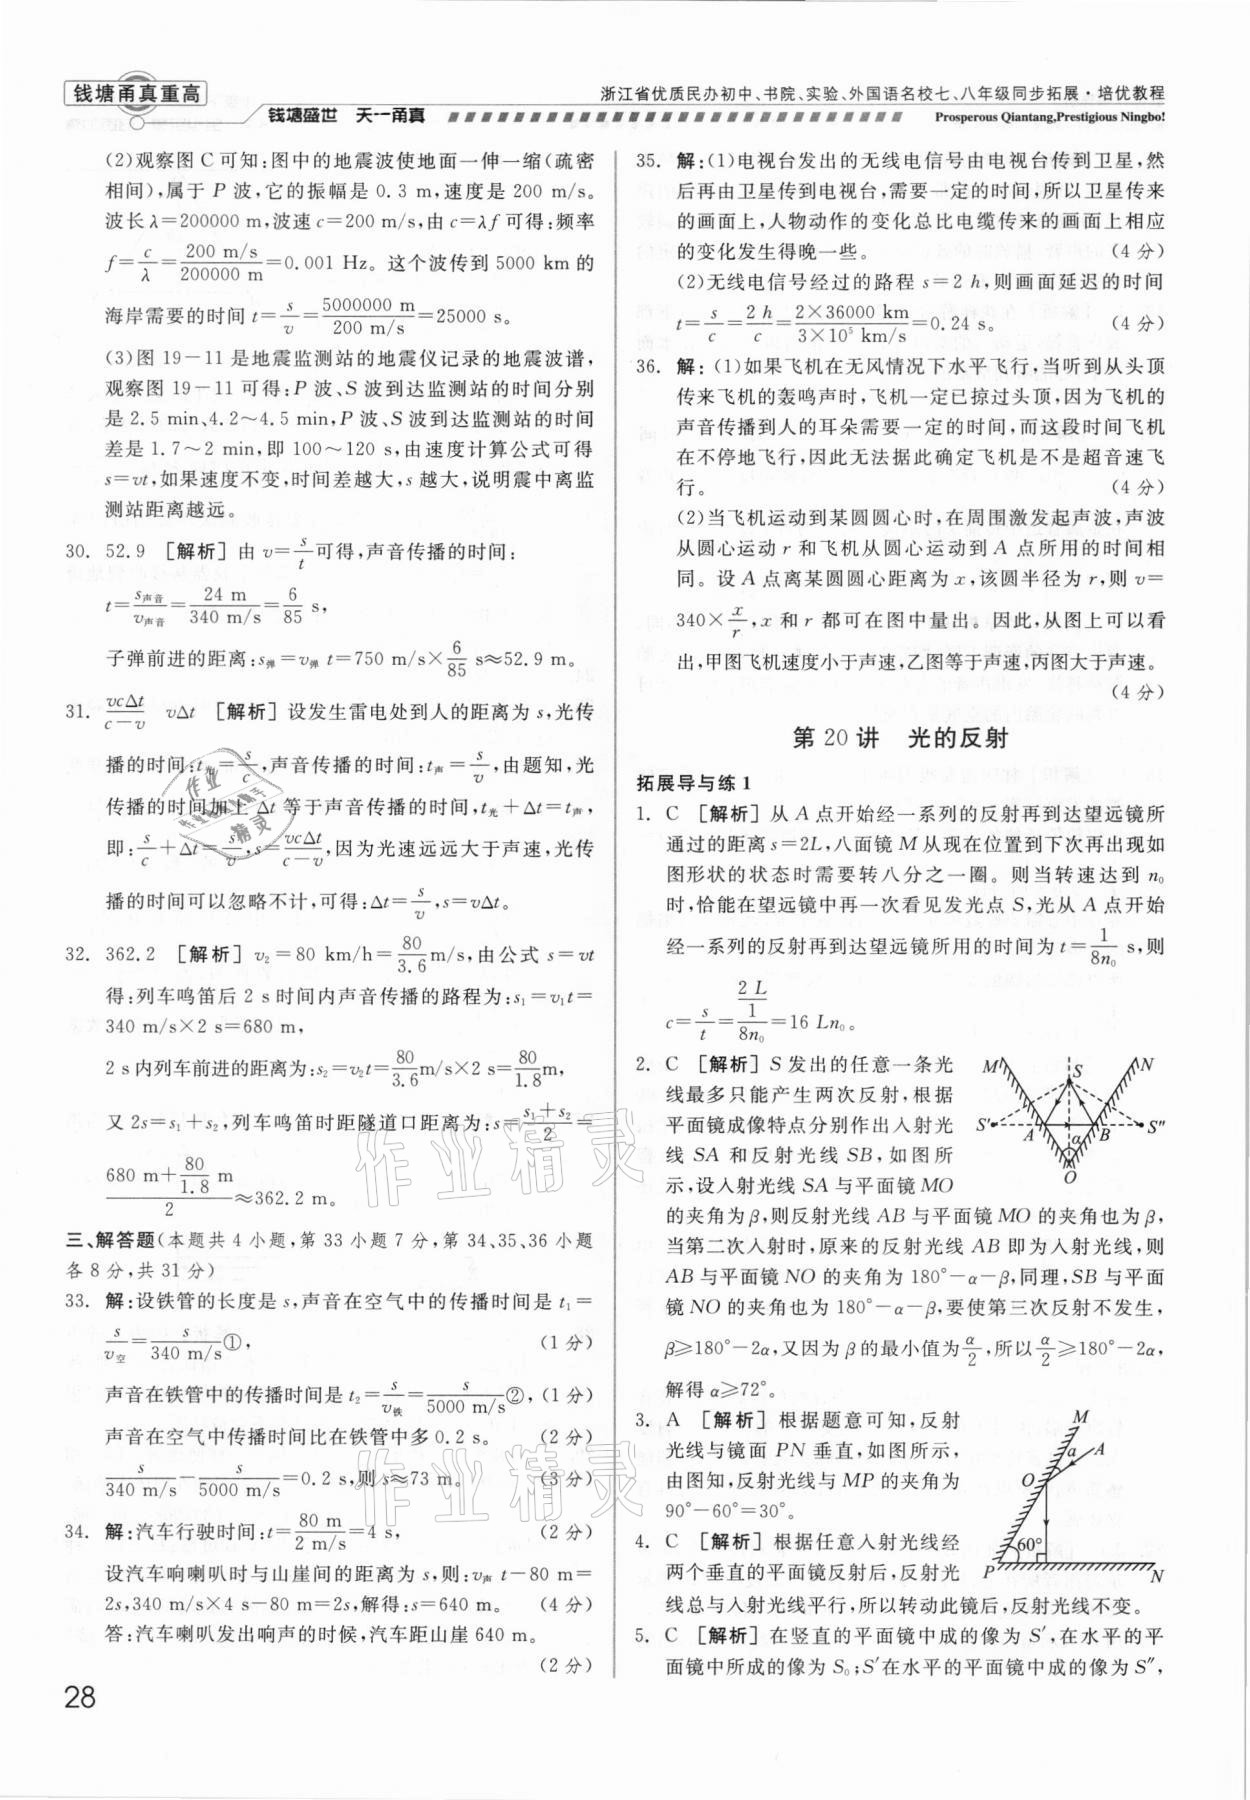 钱塘甬真重高
钱塘盛世 天一甬真
浙江省优质民办初中、书院、实验、外国语名校七、八年级同步拓展·培优教程
Prosperous Qiantang,Prestigious Ningbo!
(2)观察图 C 可知:图中的地震波使地面一伸一缩(疏密
相间),属于 P 波,它的振幅是 0.3 m,速度是 200 m/s。
波长 λ=200000 m,波速 c=200 m/s,由 c=λf 可得:频率
f=c/λ=200 m/s/200000 m=0.001 Hz。这个波传到 5000 km 的
海岸需要的时间 t=s/v=5000000 m/200 m/s=25000 s。
(3)图 19-11 是地震监测站的地震仪记录的地震波谱,
观察图 19-11 可得:P 波、S 波到达监测站的时间分别
是 2.5 min、4.2～4.5 min,P 波、S 波到达监测站的时间
差是 1.7～2 min,即 100～120 s,由速度计算公式可得
s=vt,如果速度不变,时间差越大,s 越大,说明震中离监
测站距离越远。
30. 52.9 [解析] 由 v=s/t可得,声音传播的时间:
t=s声音/v声音=24 m/340 m/s=6/85 s,
子弹前进的距离:s弹=v弹 t=750 m/s×6/85 s≈52.9 m。
31. vcΔt/c-v vΔt [解析] 设发生雷电处到人的距离为 s,光传
播的时间:t光=s/c,声音传播的时间:t声=s/v,由题知,光
传播的时间加上 Δt 等于声音传播的时间,t光+Δt=t声,
即:s/c+Δt=s/v,s=vcΔt/c-v,因为光速远远大于声速,光传
播的时间可以忽略不计,可得:Δt=s/v,s=vΔt。
32. 362.2 [解析] v₂=80 km/h=80/3.6m/s,由公式 s=vt
得:列车鸣笛后 2 s 时间内声音传播的路程为:s₁=v₁t=
340 m/s×2 s=680 m,
2 s 内列车前进的距离为:s₂=v₂t=80/3.6m/s×2 s=80/1.8m,
又 2s=s₁+s₂,列车鸣笛时距隧道口距离为:s=s₁+s₂/2=
680 m+80/1.8 m/2≈362.2 m。
三、解答题(本题共 4 小题,第 33 小题 7 分,第 34、35、36 小题
各 8 分,共 31 分)
33. 解:设铁管的长度是 s,声音在空气中的传播时间是 t₁=
s/v空=s/340 m/s①, (1 分)
声音在铁管中的传播时间是 t₂=s/v铁=s/5000 m/s②,(1 分)
声音在空气中传播时间比在铁管中多 0.2 s。 (2 分)
s/340 m/s-s/5000 m/s=0.2 s,则 s≈73 m。 (3 分)
34. 解:汽车行驶时间:t=80 m/2 m/s=4 s, (2 分)
设汽车响喇叭时与山崖间的距离为 s,则:v声 t-80 m=
2s,340 m/s×4 s-80 m=2s,解得:s=640 m。 (4 分)
答:汽车喇叭发出响声的时候,汽车距山崖 640 m。
(2 分)
28
35. 解:(1)电视台发出的无线电信号由电视台传到卫星,然
后再由卫星传到电视台,需要一定的时间,所以卫星传来
的画面上,人物动作的变化总比电缆传来的画面上相应
的变化发生得晚一些。 (4 分)
(2)无线电信号经过的路程 s=2 h,则画面延迟的时间
t=s/c=2 h/c=2×36000 km/3×10⁵ km/s=0.24 s。 (4 分)
36. 解:(1)如果飞机在无风情况下水平飞行,当听到从头顶
传来飞机的轰鸣声时,飞机一定已掠过头顶,因为飞机的
声音传播到人的耳朵需要一定的时间,而这段时间飞机
在不停地飞行,因此无法据此确定飞机是不是超音速飞
行。 (4 分)
(2)当飞机运动到某圆圆心时,在周围激发起声波,声波
从圆心运动 r 和飞机从圆心运动到 A 点所用的时间相
同。设 A 点离某圆圆心距离为 x,该圆半径为 r,则 v=
340×x/r,x 和 r 都可在图中量出。因此,从图上可以看
出,甲图飞机速度小于声速,乙图等于声速,丙图大于声速。
(4 分)
第 20 讲 光的反射
拓展导与练 1
1. C [解析] 从 A 点开始经一系列的反射再到达望远镜所
通过的距离 s=2L,八面镜 M 从现在位置到下次再出现如
图形状的状态时需要转八分之一圈。则当转速达到 n₀
时,恰能在望远镜中再一次看见发光点 S,光从 A 点开始
经一系列的反射再到达望远镜所用的时间为 t=1/8n₀ s,则
c=s/t=2 L/1/8n₀=16 Ln₀。
2. C [解析] S 发出的任意一条光
线最多只能产生两次反射,根据
平面镜成像特点分别作出入射光
线 SA 和反射光线 SB,如图所
示,设入射光线 SA 与平面镜 MO
的夹角为 β,则反射光线 AB 与平面镜 MO 的夹角也为 β,
当第二次入射时,原来的反射光线 AB 即为入射光线,则
AB 与平面镜 NO 的夹角为 180°-α-β,同理,SB 与平面
镜 NO 的夹角也为 180°-α-β,要使第三次反射不发生,
β≥180°-2α,又因为 β 的最小值为α/2,所以α/2≥180°-2α,
解得 α≥72°。
M
S
N
S′
A
α
B
S″
O
3. A [解析] 根据题意可知,反射
光线与镜面 PN 垂直,如图所示,
由图知,反射光线与 MP 的夹角为
90°-60°=30°。
4. C [解析] 根据任意入射光线经
两个垂直的平面镜反射后,反射光
线总与入射光线平行,所以转动此镜后,反射光线不变。
M
α
A
O
60°
P
N
5. C [解析] 在竖直的平面镜中成的像为 S′,在水平的平
面镜中所成的像为 S₀;S′在水平的平面镜中成的像为 S″,
作业精灵
作业精灵
作业精灵